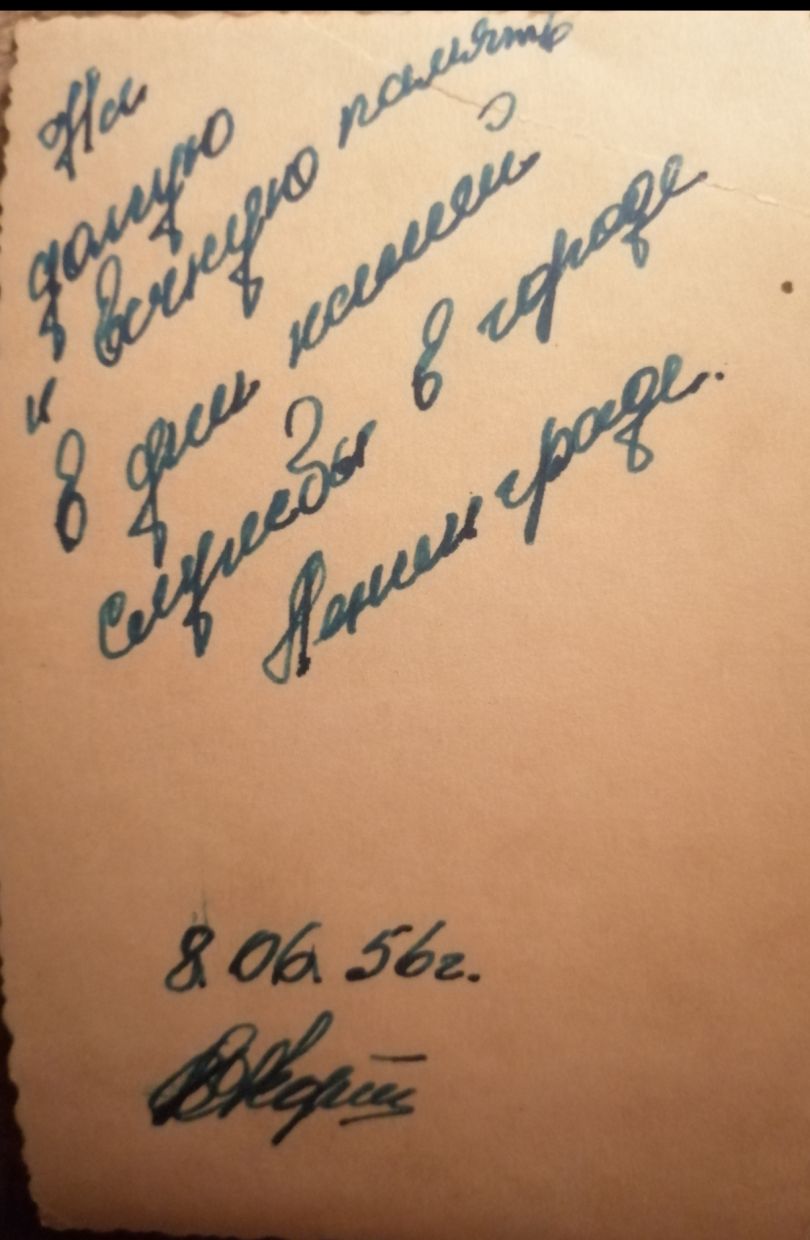 На
долгую
и вечную память
в дни нашей
службы в городе
Ленинграде.
8.06.56г.